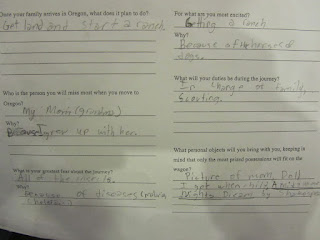 Once your family arrives in Oregon, what does it plan to do?
Get land and start a ranch
Who is the person you will miss most when you move to
Oregon?
My Mema (grandma)
Why?
I grew up with her.
What is your greatest fear about the journey?
All of the
Why?
Because of diseases
For what are you most excited?
Getting a ranch
Why?
Because of the horses &
dogs.
What will your duties be during the journey?
In charge of family,
Scouting.
What personal objects will you bring with you, keeping in
mind that only the most prized possessions will fit on the
wagon?
Picture of mom, Doll
I got when child, A midsummer
Nights Dream by Shakespeare